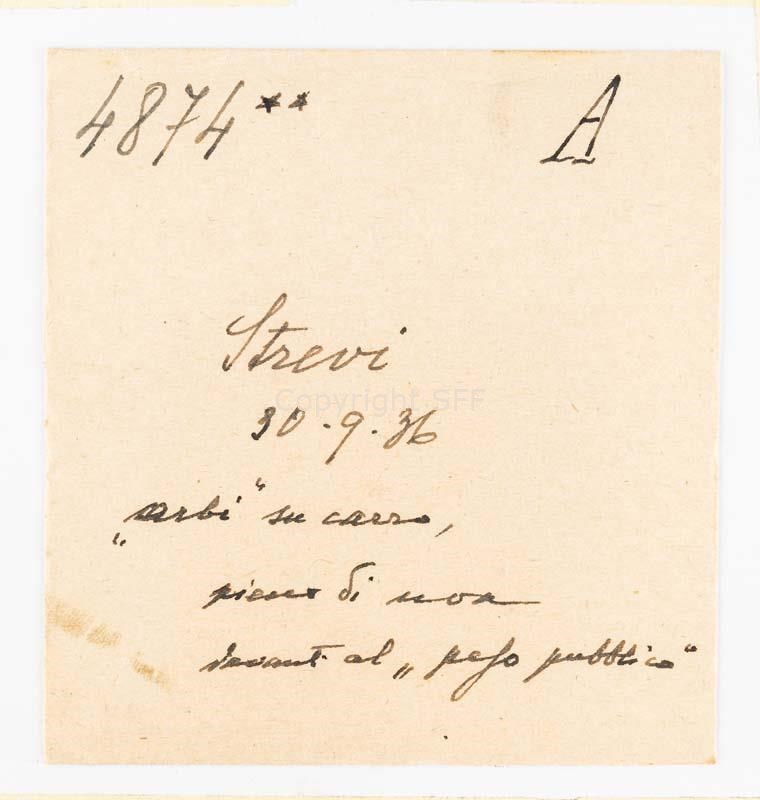 4874** A
Strevi
Copyright SFF
30.9.36
„arbi“ su carro,
pieno di uva
davanti al „peso pubblico“